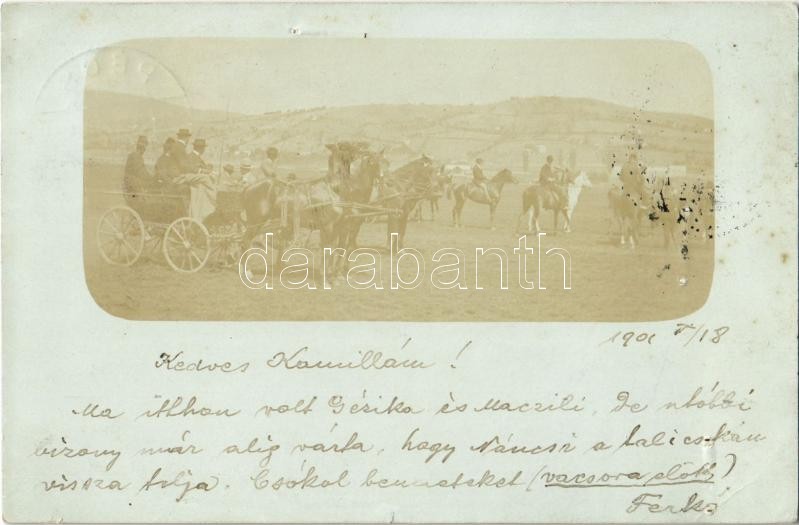 darabanth
1901 V/18
Kedves Kamillám!
Ma itthon volt Gézika és Maczili, De utóbbi
bizony már alig várta, hogy Náncsi a talicskán
vissza tolja. Csókol benneteket (vacsora előtt)
Ferkó